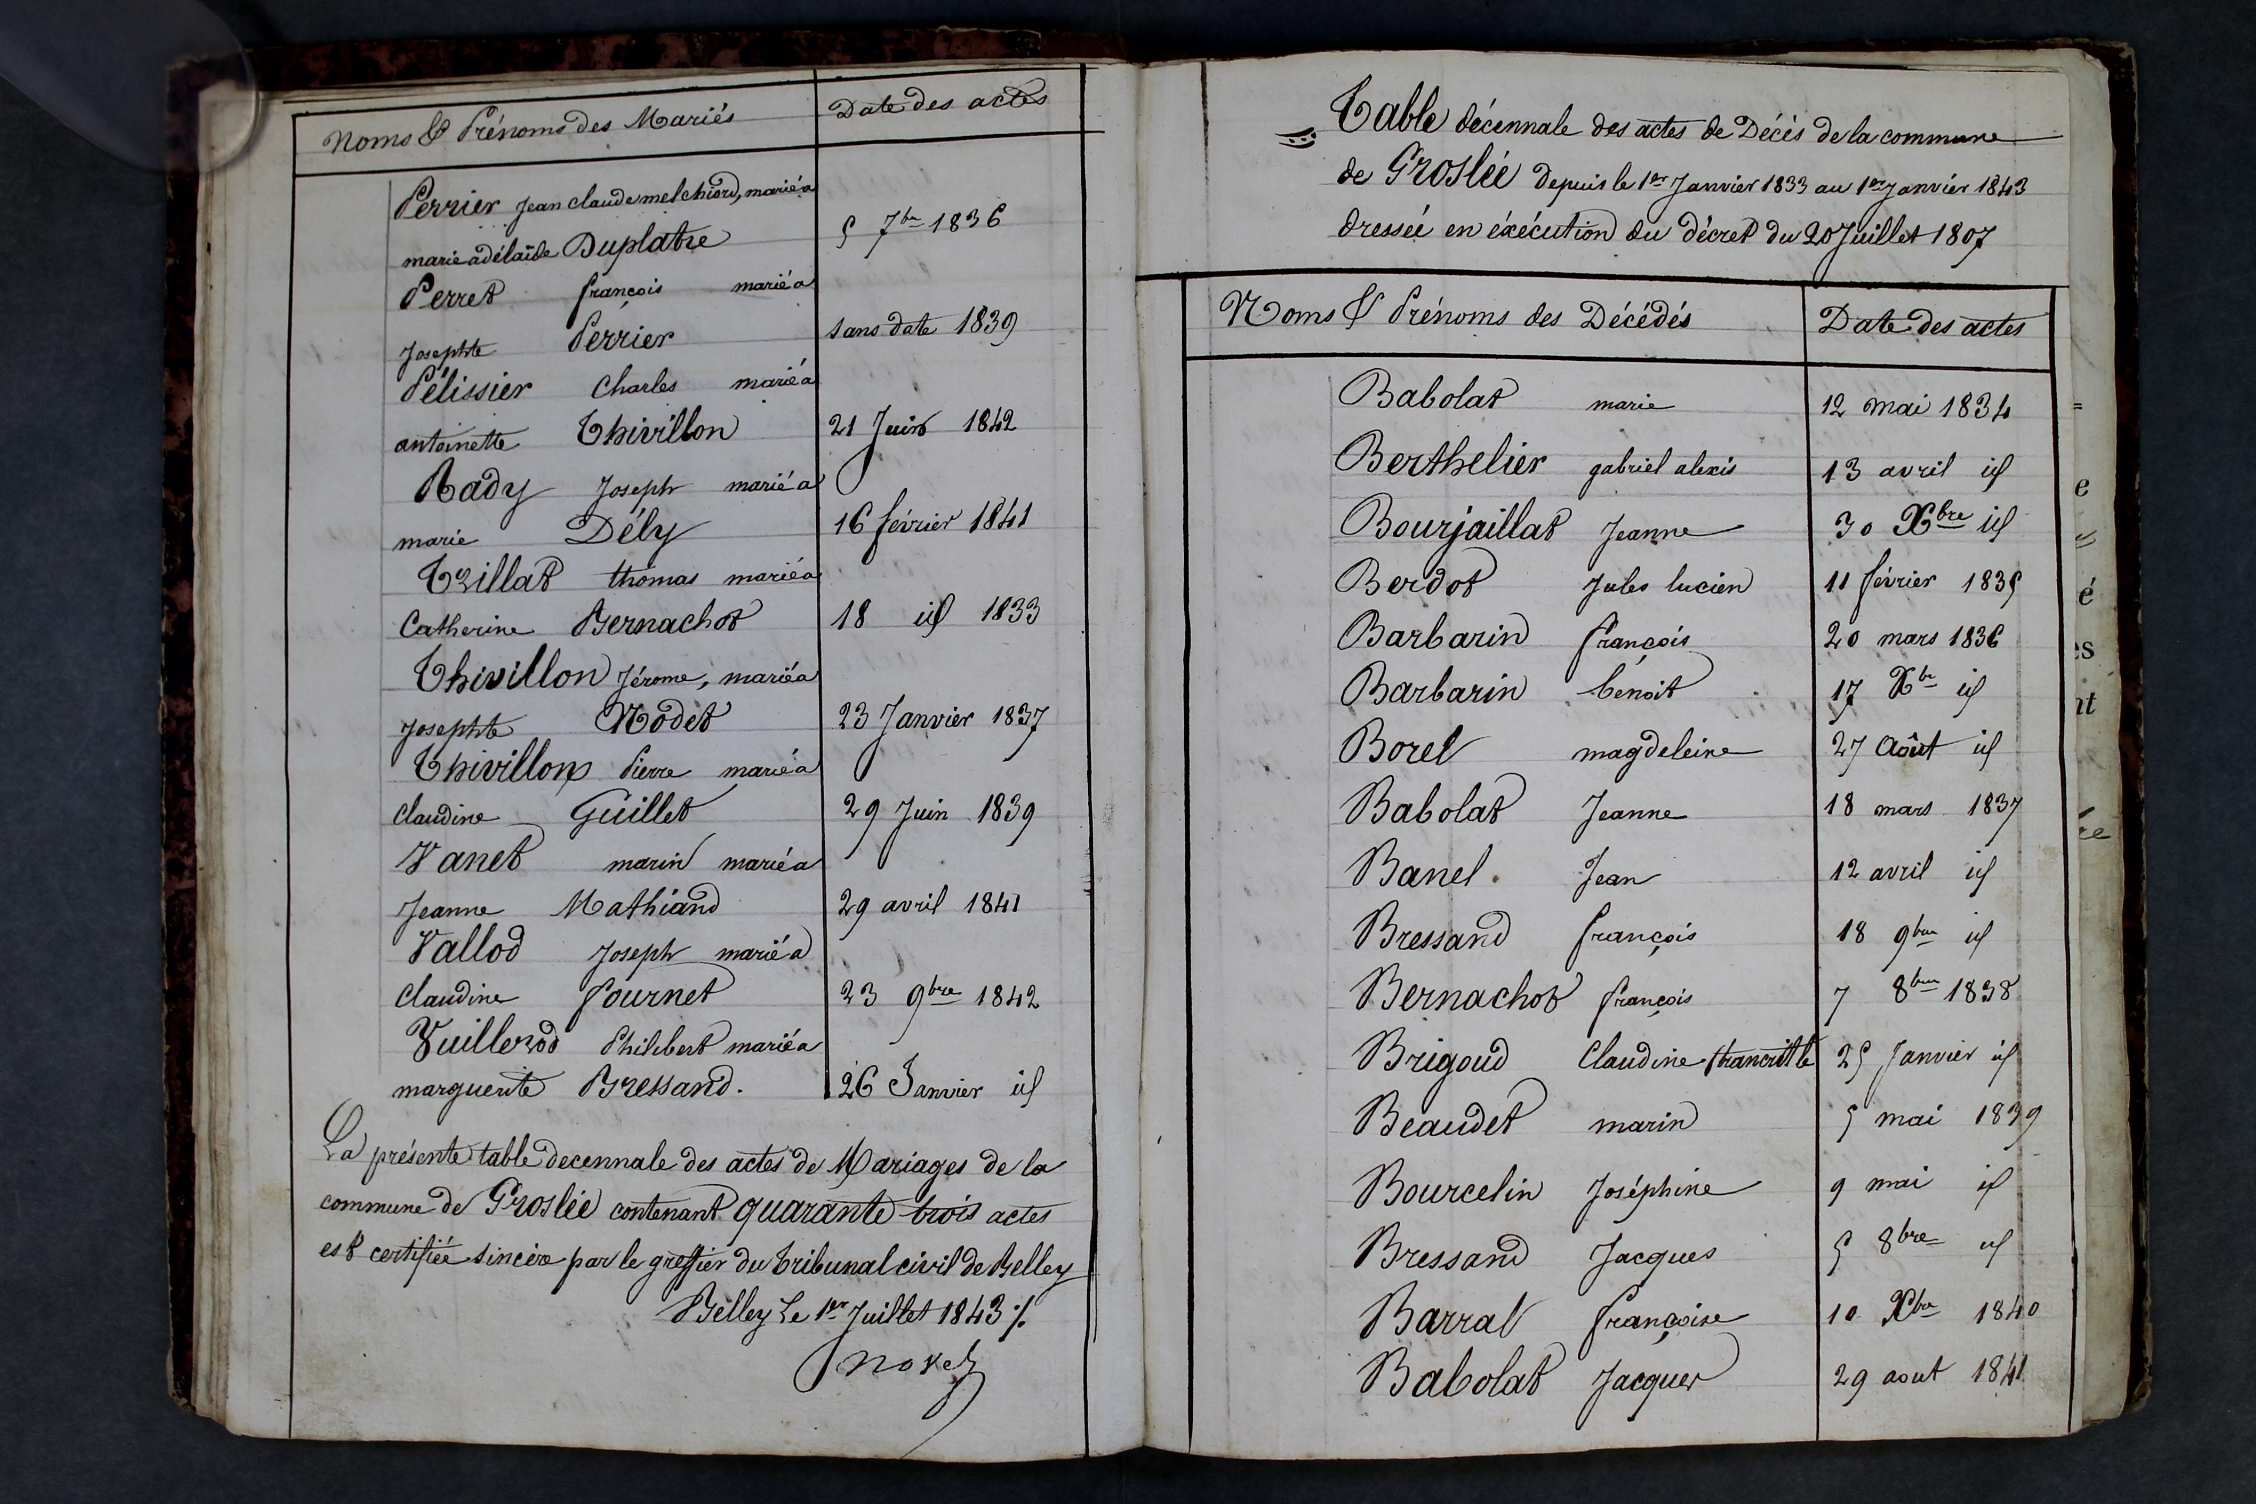 Noms & Prénoms des Mariés Date des actes
Perrier Jean claude melchiord, marié a
marie adélaïde Duplatre 5 7bre 1836
Perret françois marié a
Josephte Perrier sans date 1839
Pélissier Charles marié a
antoinette Thivillon 21 Juin 1842
Rady Joseph marié a
marie Dély 16 février 1841
Trillat thomas marié a
Catherine Bernachot 18 id 1833
Thivillon Jérome, marié a
Josephte Nodet 23 Janvier 1837
Thivillon Pierre marié a
Claudine Guillet 29 Juin 1839
Vanet marin marié a
Jeanne Mathiand 29 avril 1841
Vallod Joseph marié a
Claudine Fournet 23 9bre 1842
Vuillerod Philibert marié a
marguerite Bressand. 26 Janvier id
La présente table decennale des actes de Mariages de la
commune de Groslée contenant quarante trois actes
est certifiée sincère par le greffier du tribunal civil de Belley
Belley Le 1er Juillet 1843 ./.
Table décennale des actes de Décès de la commune
de Groslée depuis le 1er Janvier 1833 au 1er Janvier 1843
dressée en éxécution du décret du 20 Juillet 1807
Noms & Prénoms des Décédés Date des actes
Babolat marie 12 mai 1834
Berthelier gabriel alexis 13 avril id
Bourjaillat Jeanne 30 Xbre id
Berdot Jules lucien 11 février 1835
Barbarin françois 20 mars 1836
Barbarin benoit 17 Xbre id
Borel magdeleine 27 Août id
Babolat Jeanne 18 mars 1837
Banel Jean 12 avril id
Bressand françois 18 9bre id
Bernachot françois 7 8bre 1838
Brigoud Claudine trancrit le 25 Janvier id
Beaudet marin 5 mai 1839
Bourcelin Joséphine 9 mai id
Bressand Jacques 5 8bre id
Barral françoise 10 Xbre 1840
Babolat Jacques 29 aout 1841